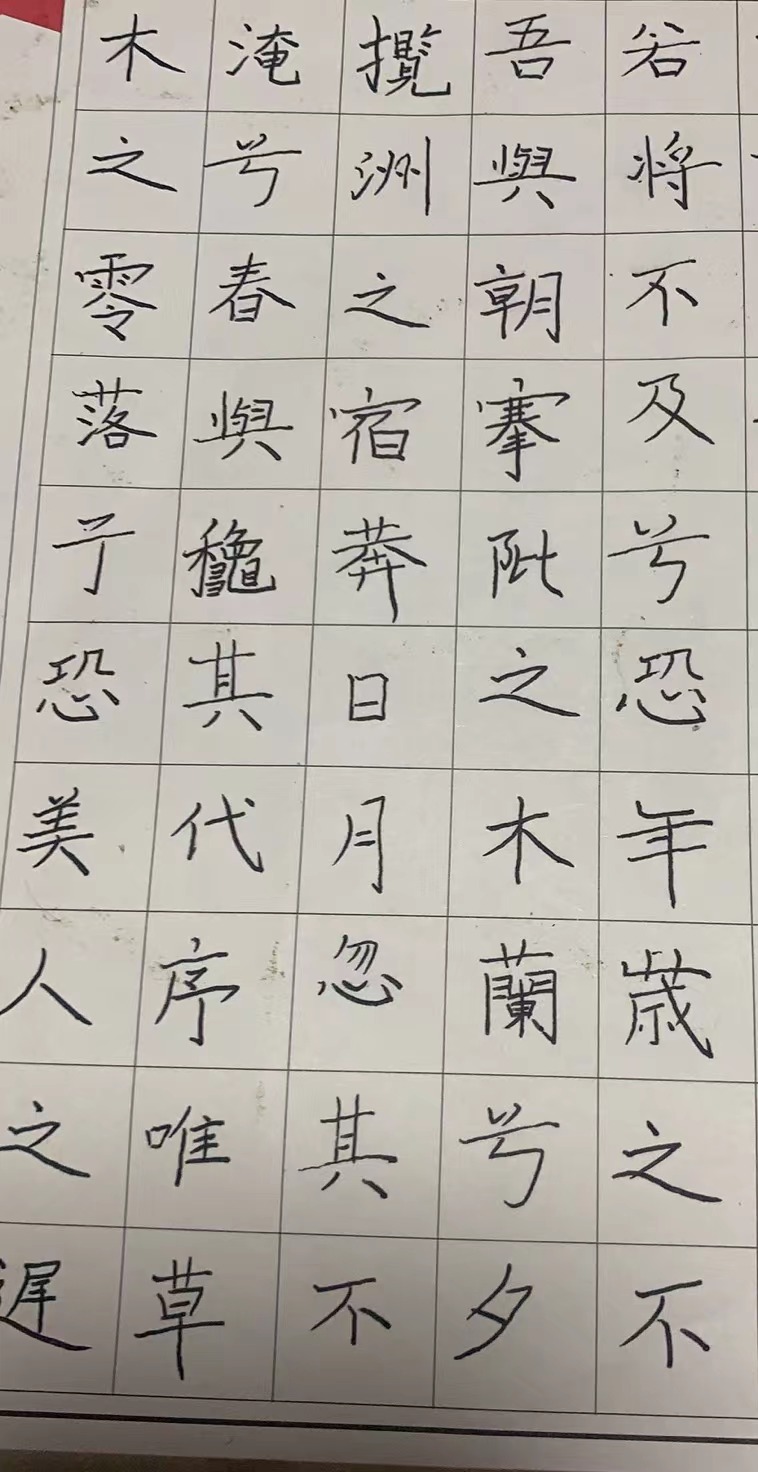 若将不及兮恐年歳之不
吾與朝搴阰之木蘭兮夕
攬洲之宿莽日月忽其不
淹兮春與龝其代序唯草
木之零落兮恐美人之遲